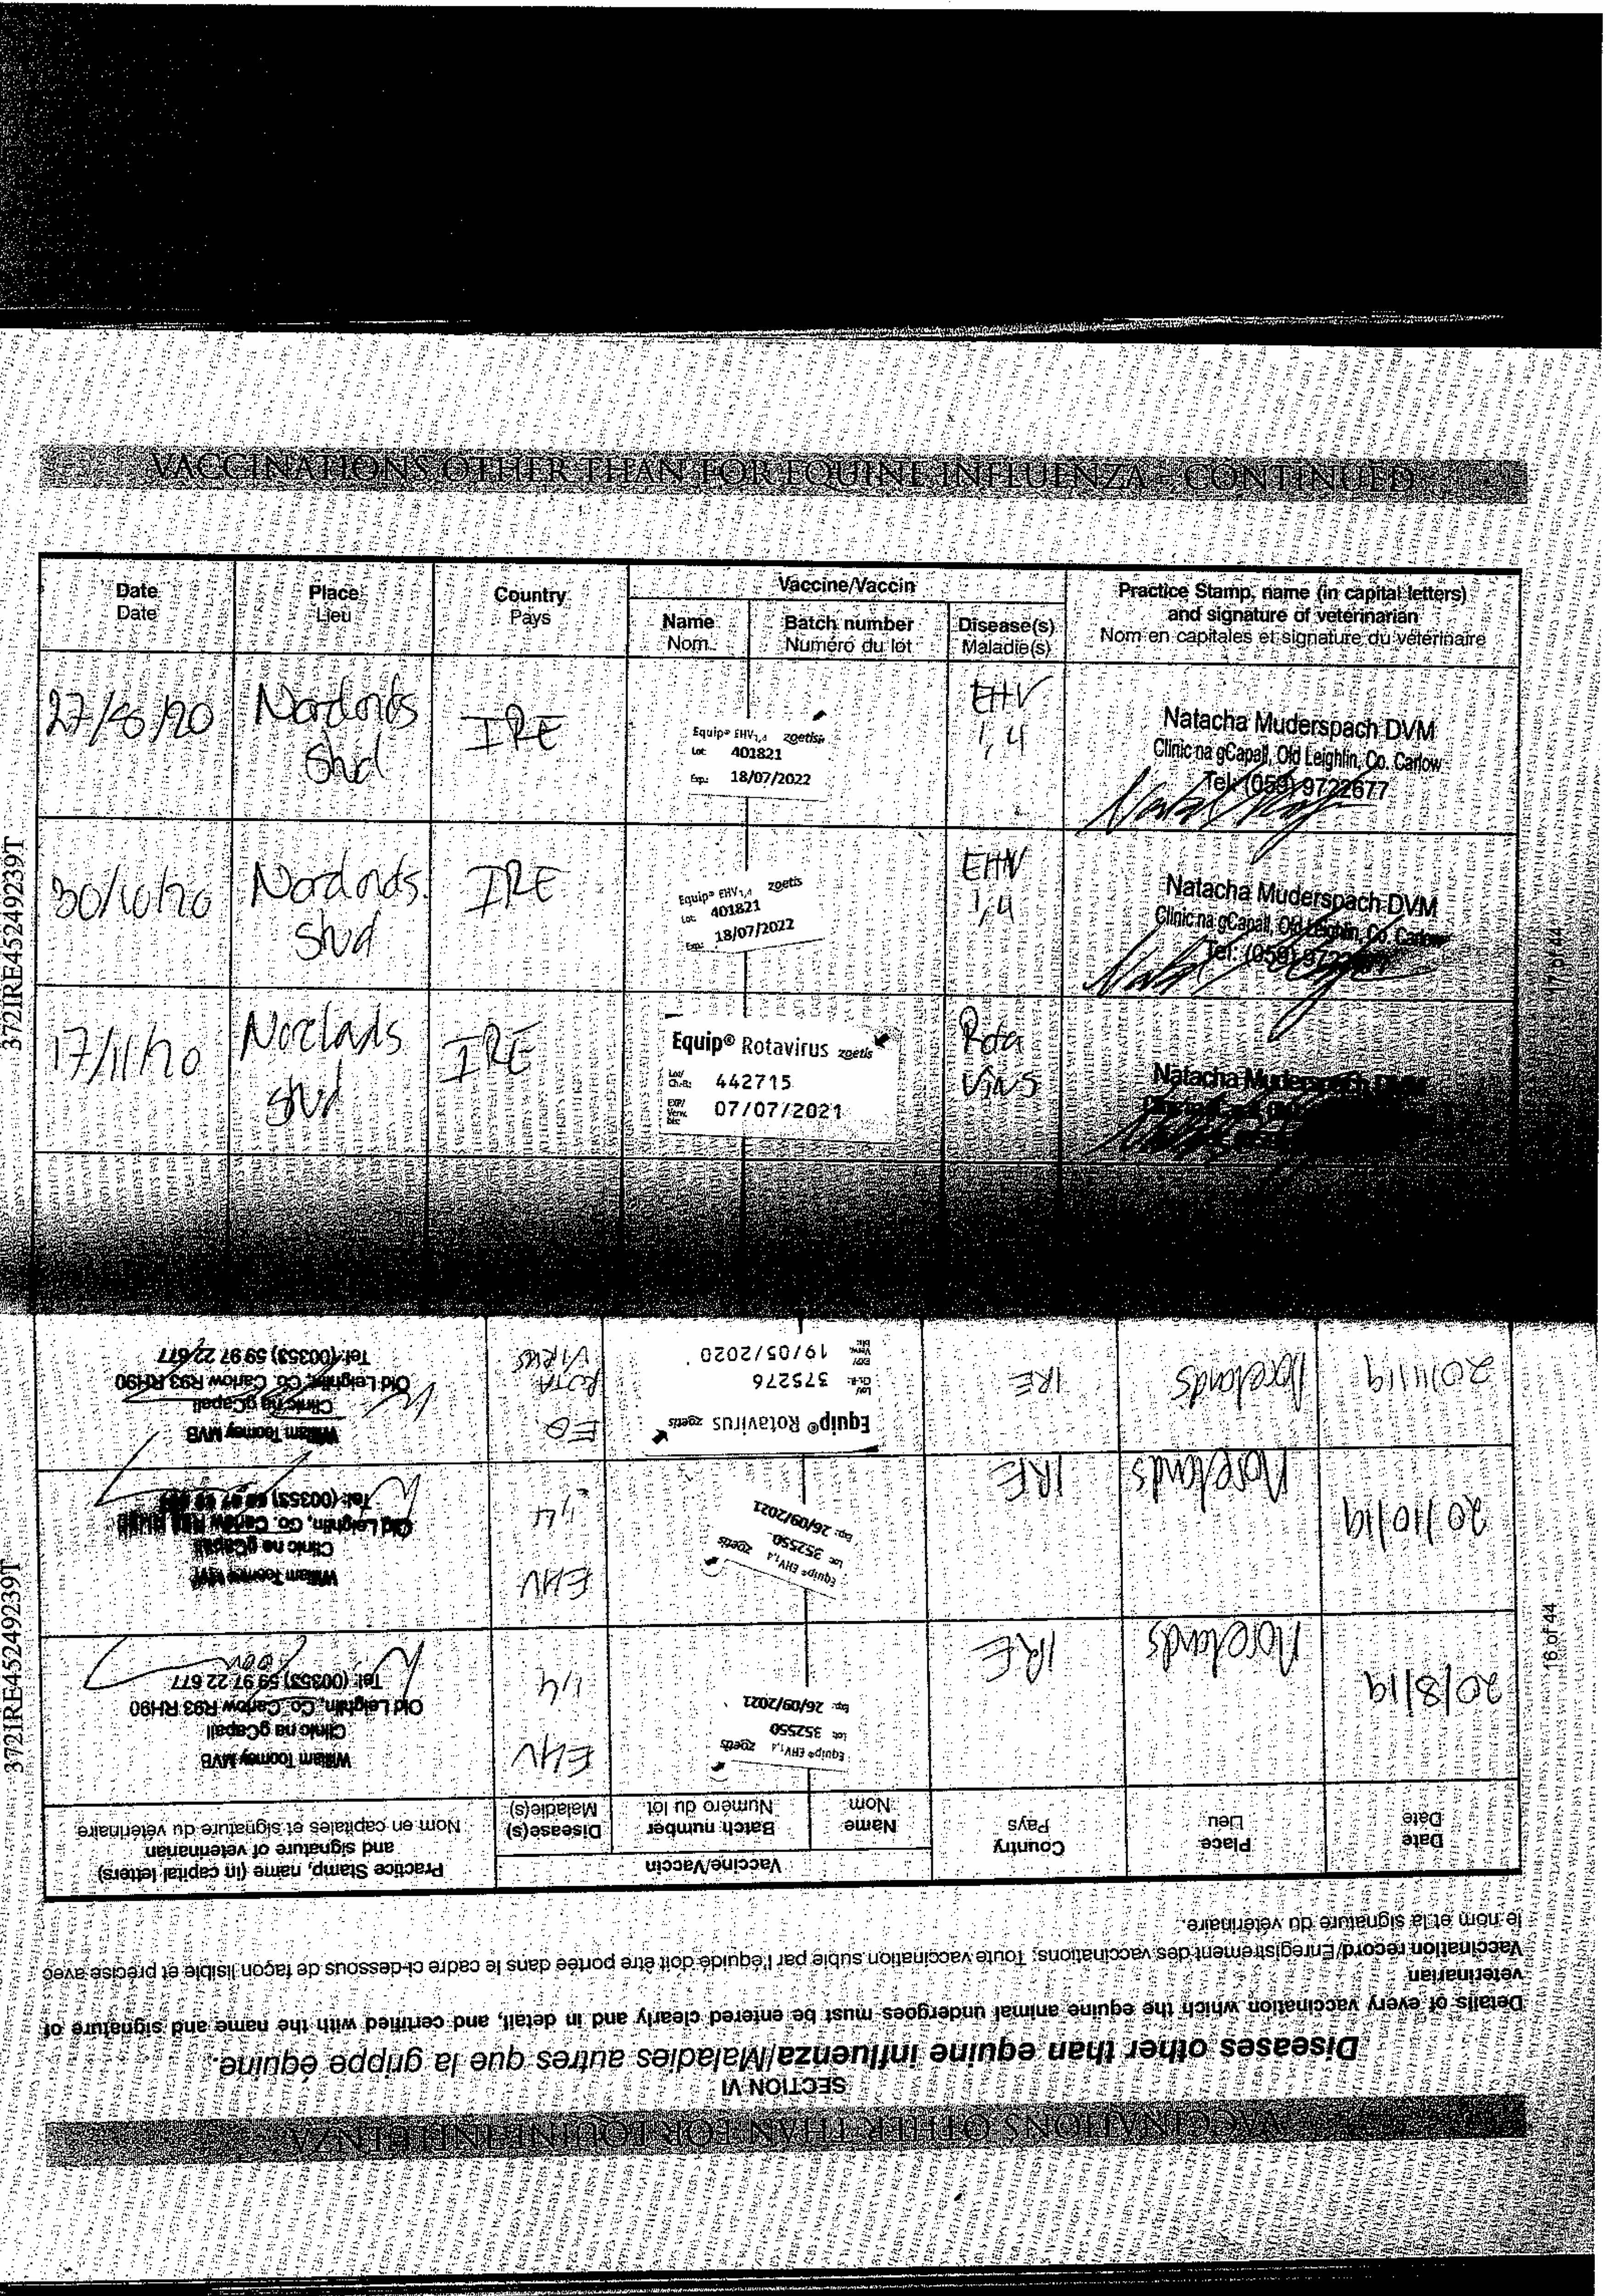 VACCINATIONS OTHER THAN FOR EQUINE INFLUENZA - CONTINUED
Date
Date
Place
Lieu
Country
Pays
Vaccine/Vaccin
Name
Nom
Batch number
Numéro du lot
Disease(s)
Maladie(s)
Practice Stamp, name (in capital letters)
and signature of veterinarian
Nom en capitales et signature du vétérinaire
IRE
Equip® EHV1,4 zoetis
Lot: 401821
Exp.: 18/07/2022
EHV
1,4
Natacha Muderspach DVM
Clinic na gCapall, Old Leighlin, Co. Carlow
Tel: (059) 9722677
30/10/20
IRE
Equip® EHV1,4 zoetis
Lot: 401821
Exp.: 18/07/2022
EHV
1,4
Natacha Muderspach DVM
Clinic na gCapall, Old Leighlin, Co. Carlow
Tel: (059)
17/11/20
IRE
Equip® Rotavirus zoetis
Lot/
Ch.-B.: 442715
EXP/
Verw.
bis: 07/07/2021
Rota
Natacha Muderspach DVM
372IRE45249239T
17 of 44
VACCINATIONS OTHER THAN FOR EQUINE INFLUENZA
SECTION VI
Diseases other than equine influenza/Maladies autres que la grippe équine.
Details of every vaccination which the equine animal undergoes must be entered clearly and in detail, and certified with the name and signature of
veterinarian
Vaccination record/Enregistrement des vaccinations: Toute vaccination subie par l'équidé doit être portée dans le cadre ci-dessous de façon lisible et précise avec
le nom et la signature du vétérinaire.
Date
Date
Place
Lieu
Country
Pays
Vaccine/Vaccin
Name
Nom
Batch number
Numéro du lot
Disease(s)
Maladie(s)
Practice Stamp, name (in capital letters)
and signature of veterinarian
Nom en capitales et signature du vétérinaire
20/8/19
Norelands
IRE
Equip® EHV1,4 zoetis
Lot: 352550
Exp: 26/09/2021
EHV
1,4
William Toomey MVB
Clinic na gCapall
Old Leighlin, Co. Carlow R93 RH90
Tel: (00353) 59 97 22 677
20/10/19
Norelands
IRE
Equip® EHV1,4 zoetis
Lot: 352550
Exp: 26/09/2021
EHV
1,4
William Toomey MVB
Clinic na gCapall
Old Leighlin, Co. Carlow R93 RH90
Tel: (00353) 59 97 22 677
20/11/19
Norelands
IRE
Equip® Rotavirus zoetis
Lot/
Ch.-B.: 375276
EXP/
Verw.
bis: 19/05/2020
EQ
ROTA
VIRUS
William Toomey MVB
Clinic na gCapall
Old Leighlin, Co. Carlow R93 RH90
Tel: (00353) 59 97 22 677
372IRE45249239T
16 of 44